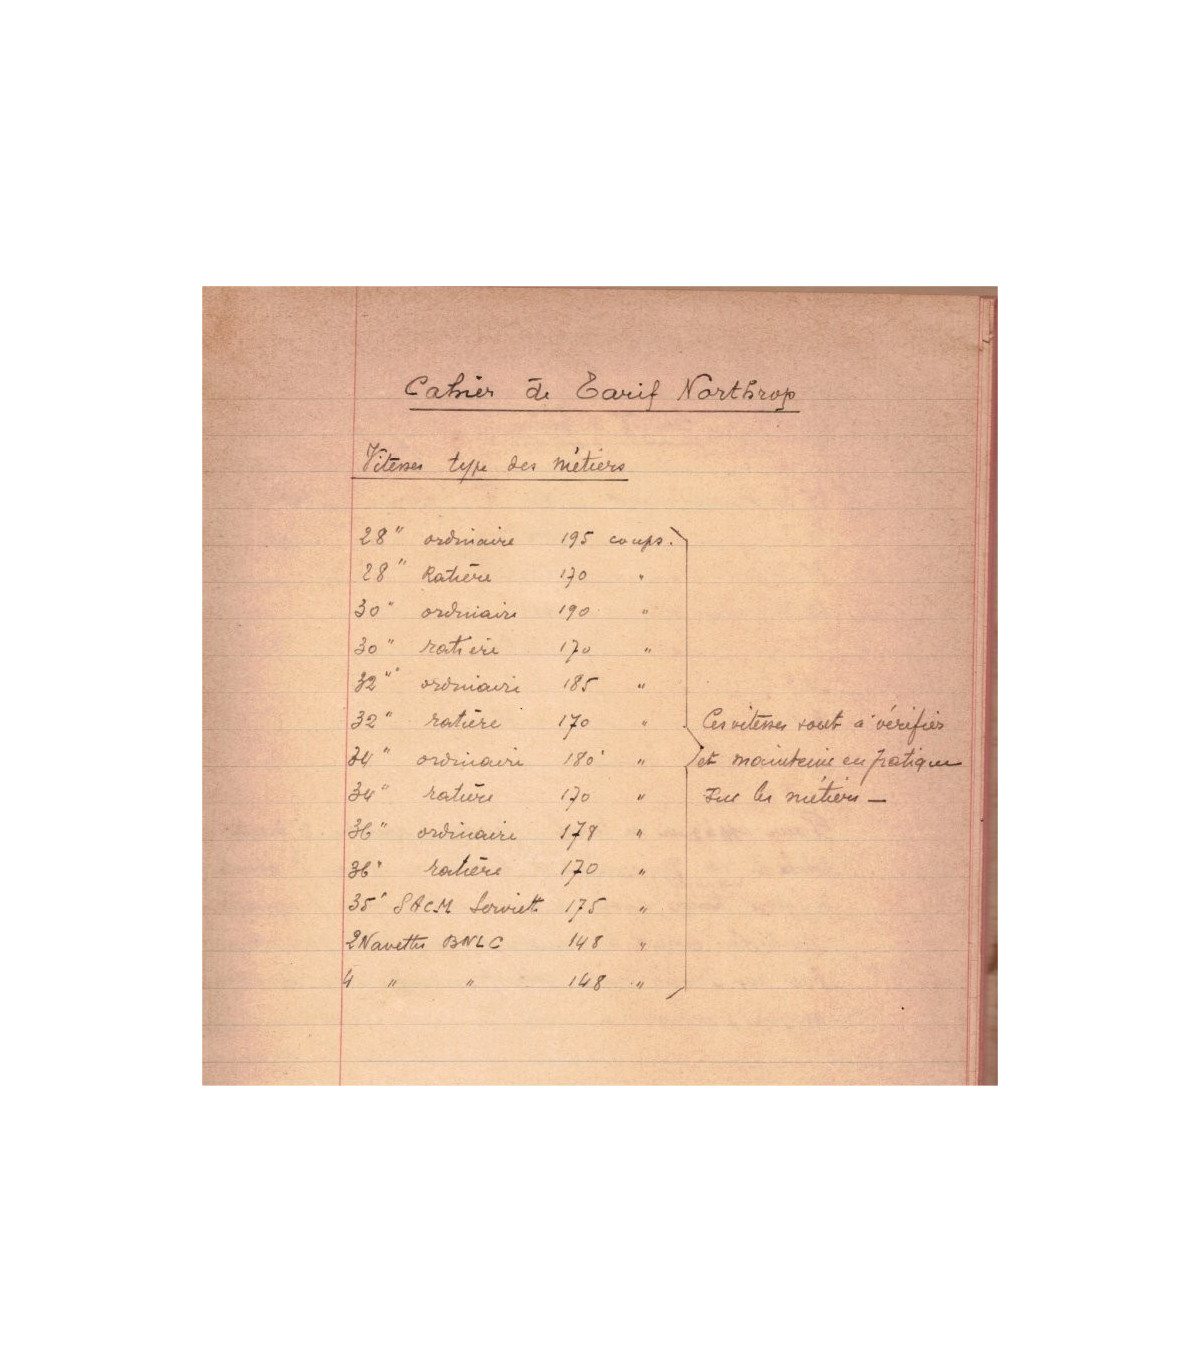 Cahier de Tarif Northrop
Vitesses type des métiers
28" ordinaire 195 coups.
28" Ratière 170 "
30" ordinaire 190 "
30" ratière 170 "
32" ordinaire 185 "
32" ratière 170 "
34" ordinaire 180 "
34" ratière 170 "
36" ordinaire 178 "
36" ratière 170 "
35" SACM Serviette 175 "
2 Navettes BNLC 148 "
4 " " 148 "
Ces vitesses sont à vérifier
et maintenir en pratique
sur les métiers —